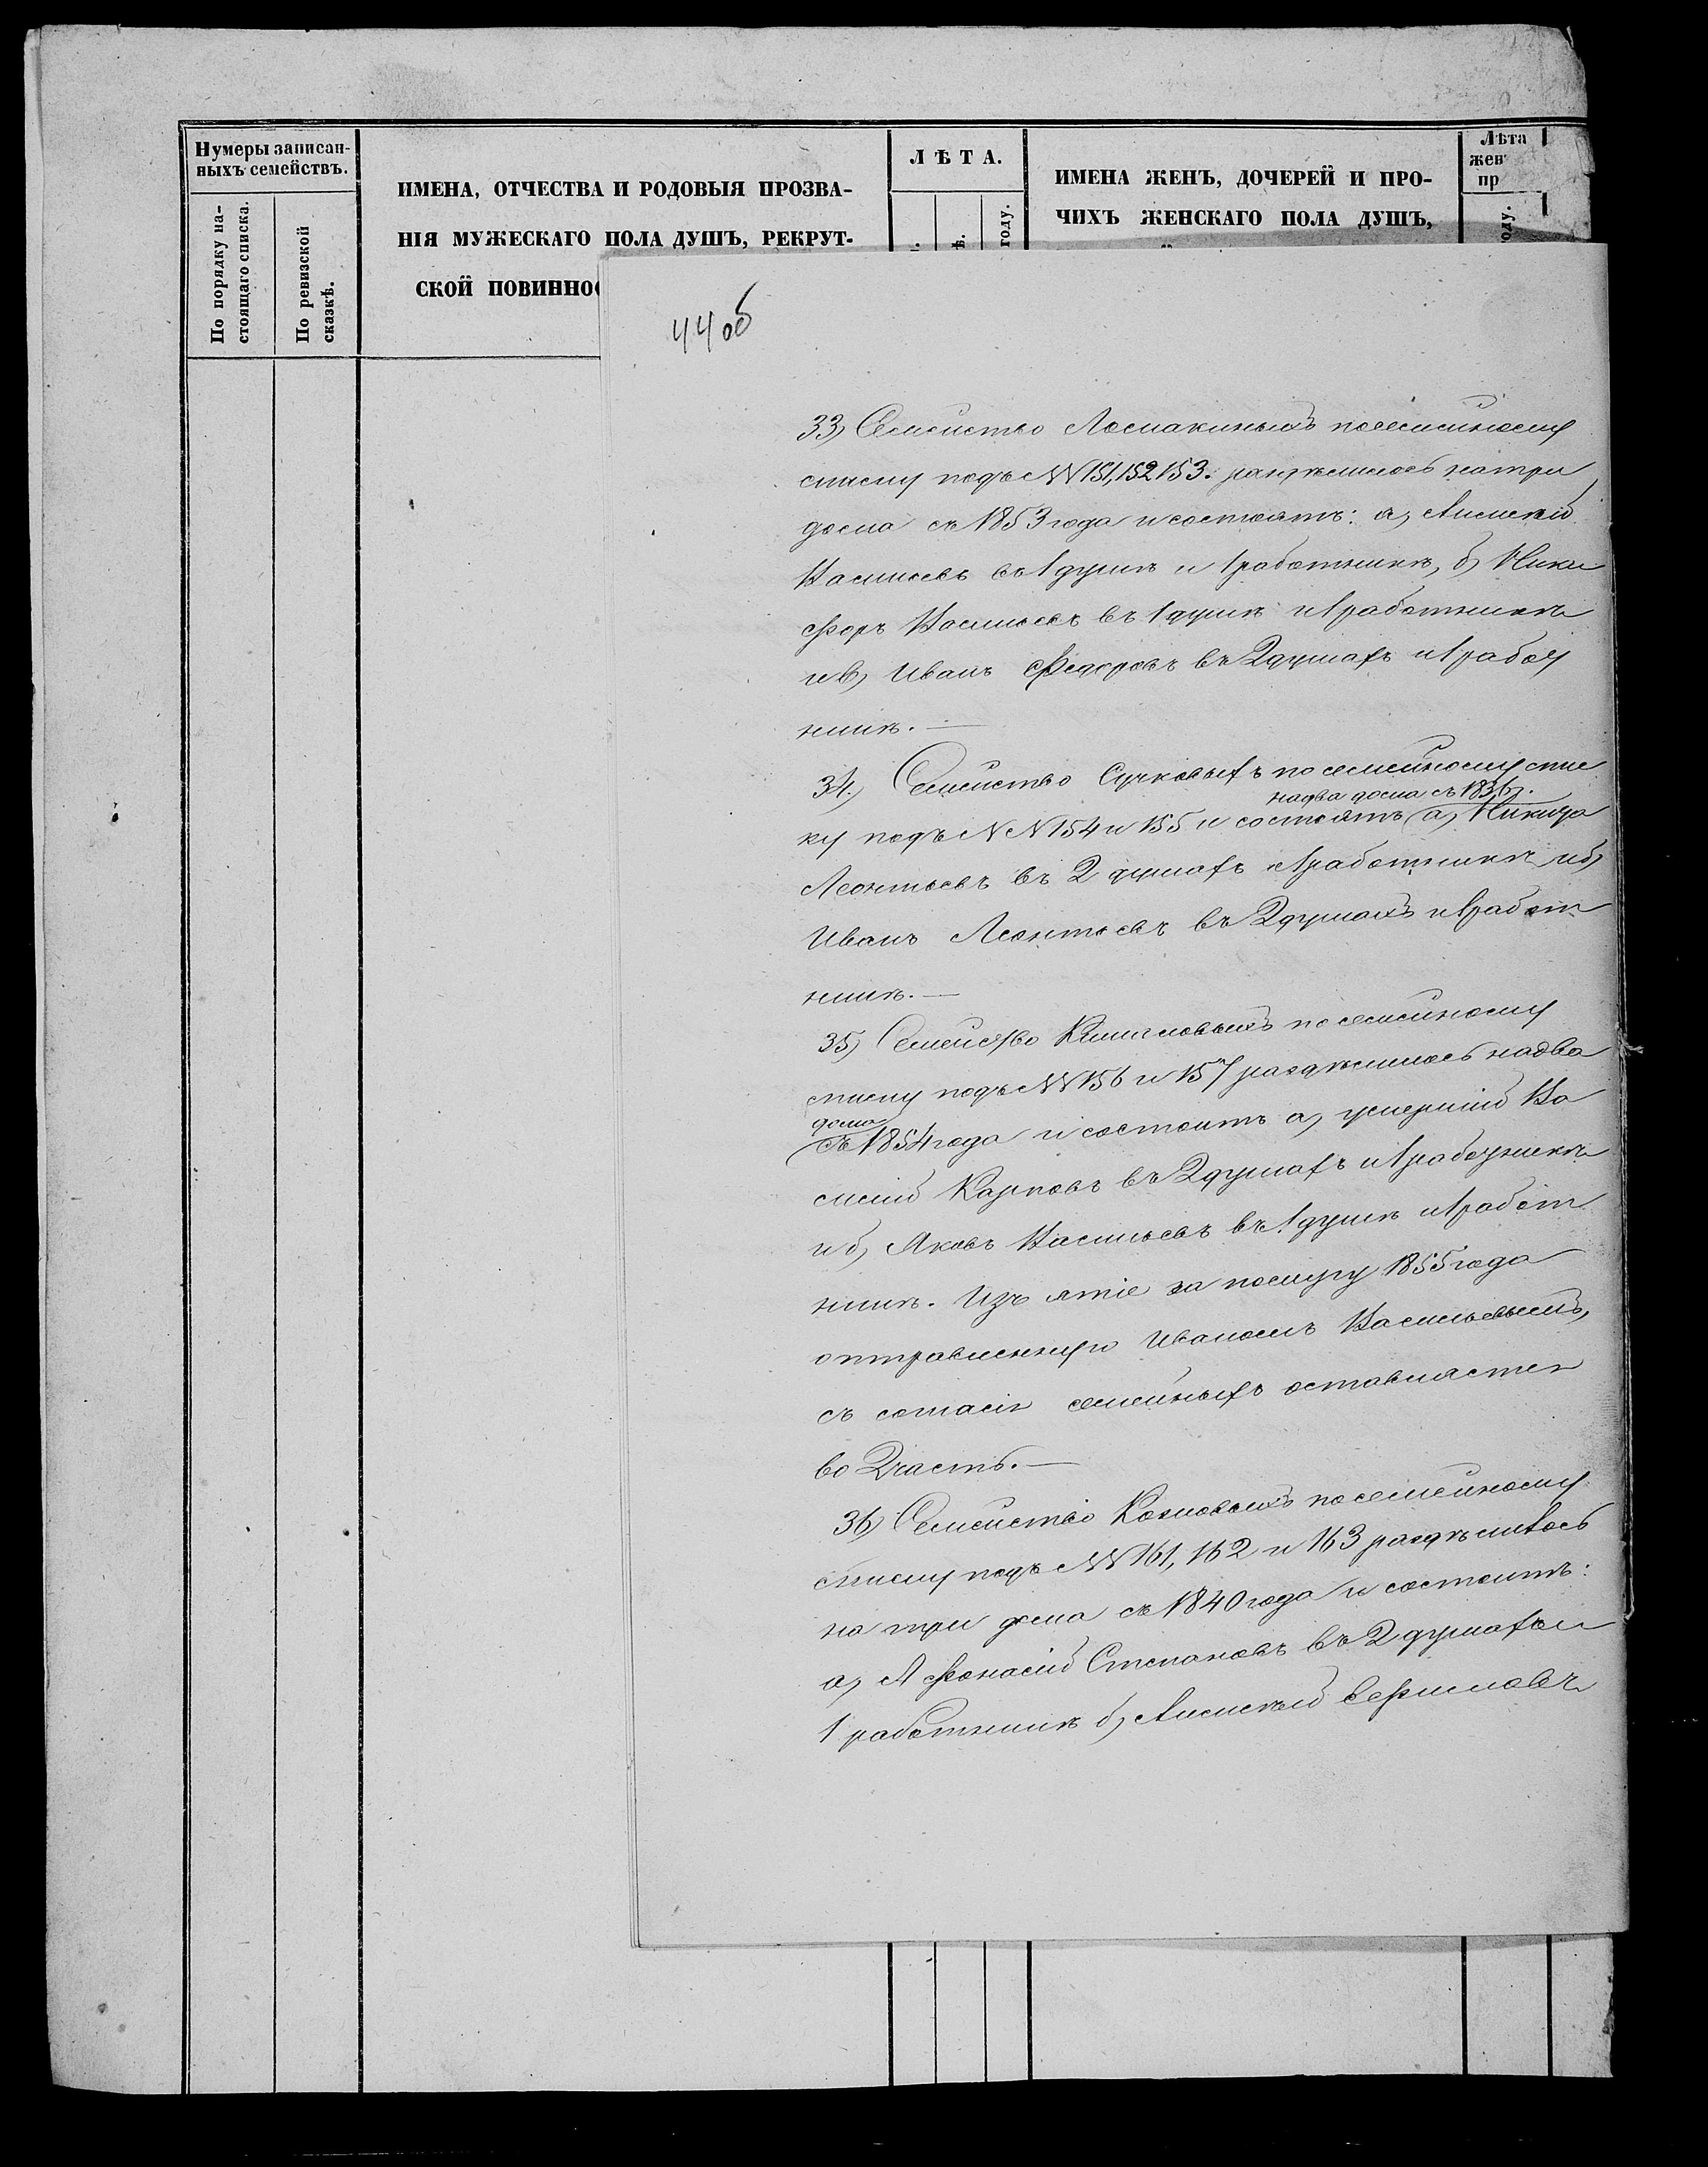 Нумеры записан-
ныхъ семействъ.
По порядку на-
стоящаго списка.
По ревизской
сказкѣ.
ИМЕНА, ОТЧЕСТВА И РОДОВЫЯ ПРОЗВА-
НІЯ МУЖЕСКАГО ПОЛА ДУШЪ, РЕКРУТ-
СКОЙ ПОВИННО
ЛѢТА.
году.
ИМЕНА ЖЕНЪ, ДОЧЕРЕЙ И ПРО-
ЧИХЪ ЖЕНСКАГО ПОЛА ДУШЪ,
Лѣта
жен
пр
оду.
44 об
33) Семейство Ломакиныхъ посемейному
списку подъ NN 151, 152 153. раздѣлилось натри
дома съ 1853 года и состоятъ: а, Алексѣй
Васильевъ въ 1 душѣ и 1 работникъ, б, Ники
форъ Васильевъ въ 1 душѣ и 1 работникъ
и в, Иванъ Федоровъ въ 2 душахъ и 1 работ
никъ. —
34.) Семейство Сучковыхъ по семейному спи
на два дома съ 1836 г.
ку подъ N N 154 и 155 и состоятъ а, Никита
Леонтьевъ въ 2 душахъ 1 работникъ и б,
Иванъ Леонтьевъ въ 2 душахъ и 1 работ
никъ. —
35) Семейство посемейному
списку подъ NN 156 и 157 раздѣлилось надва
дома
съ 1854 года и состоитъ а, умершій Ва
силій Карповъ въ 2 душахъ и 1 работникъ
и б, Яковъ Васильевъ въ 1 душѣ и 1 работ
никъ. Изъятіе за послугу 1855 года
отправленную Иваномъ Васильевымъ,
съ согласія семейныхъ оставляется
во 2 часть. —
36) Семейство Козловыхъ посемейному
списку подъ NN 161, 162 и 163 раздѣлилось
на три дома съ 1840 года и состоитъ:
а, Афонасій Степановъ въ 2 душахъ и
1 работникъ б, Алексѣй Ефимовъ